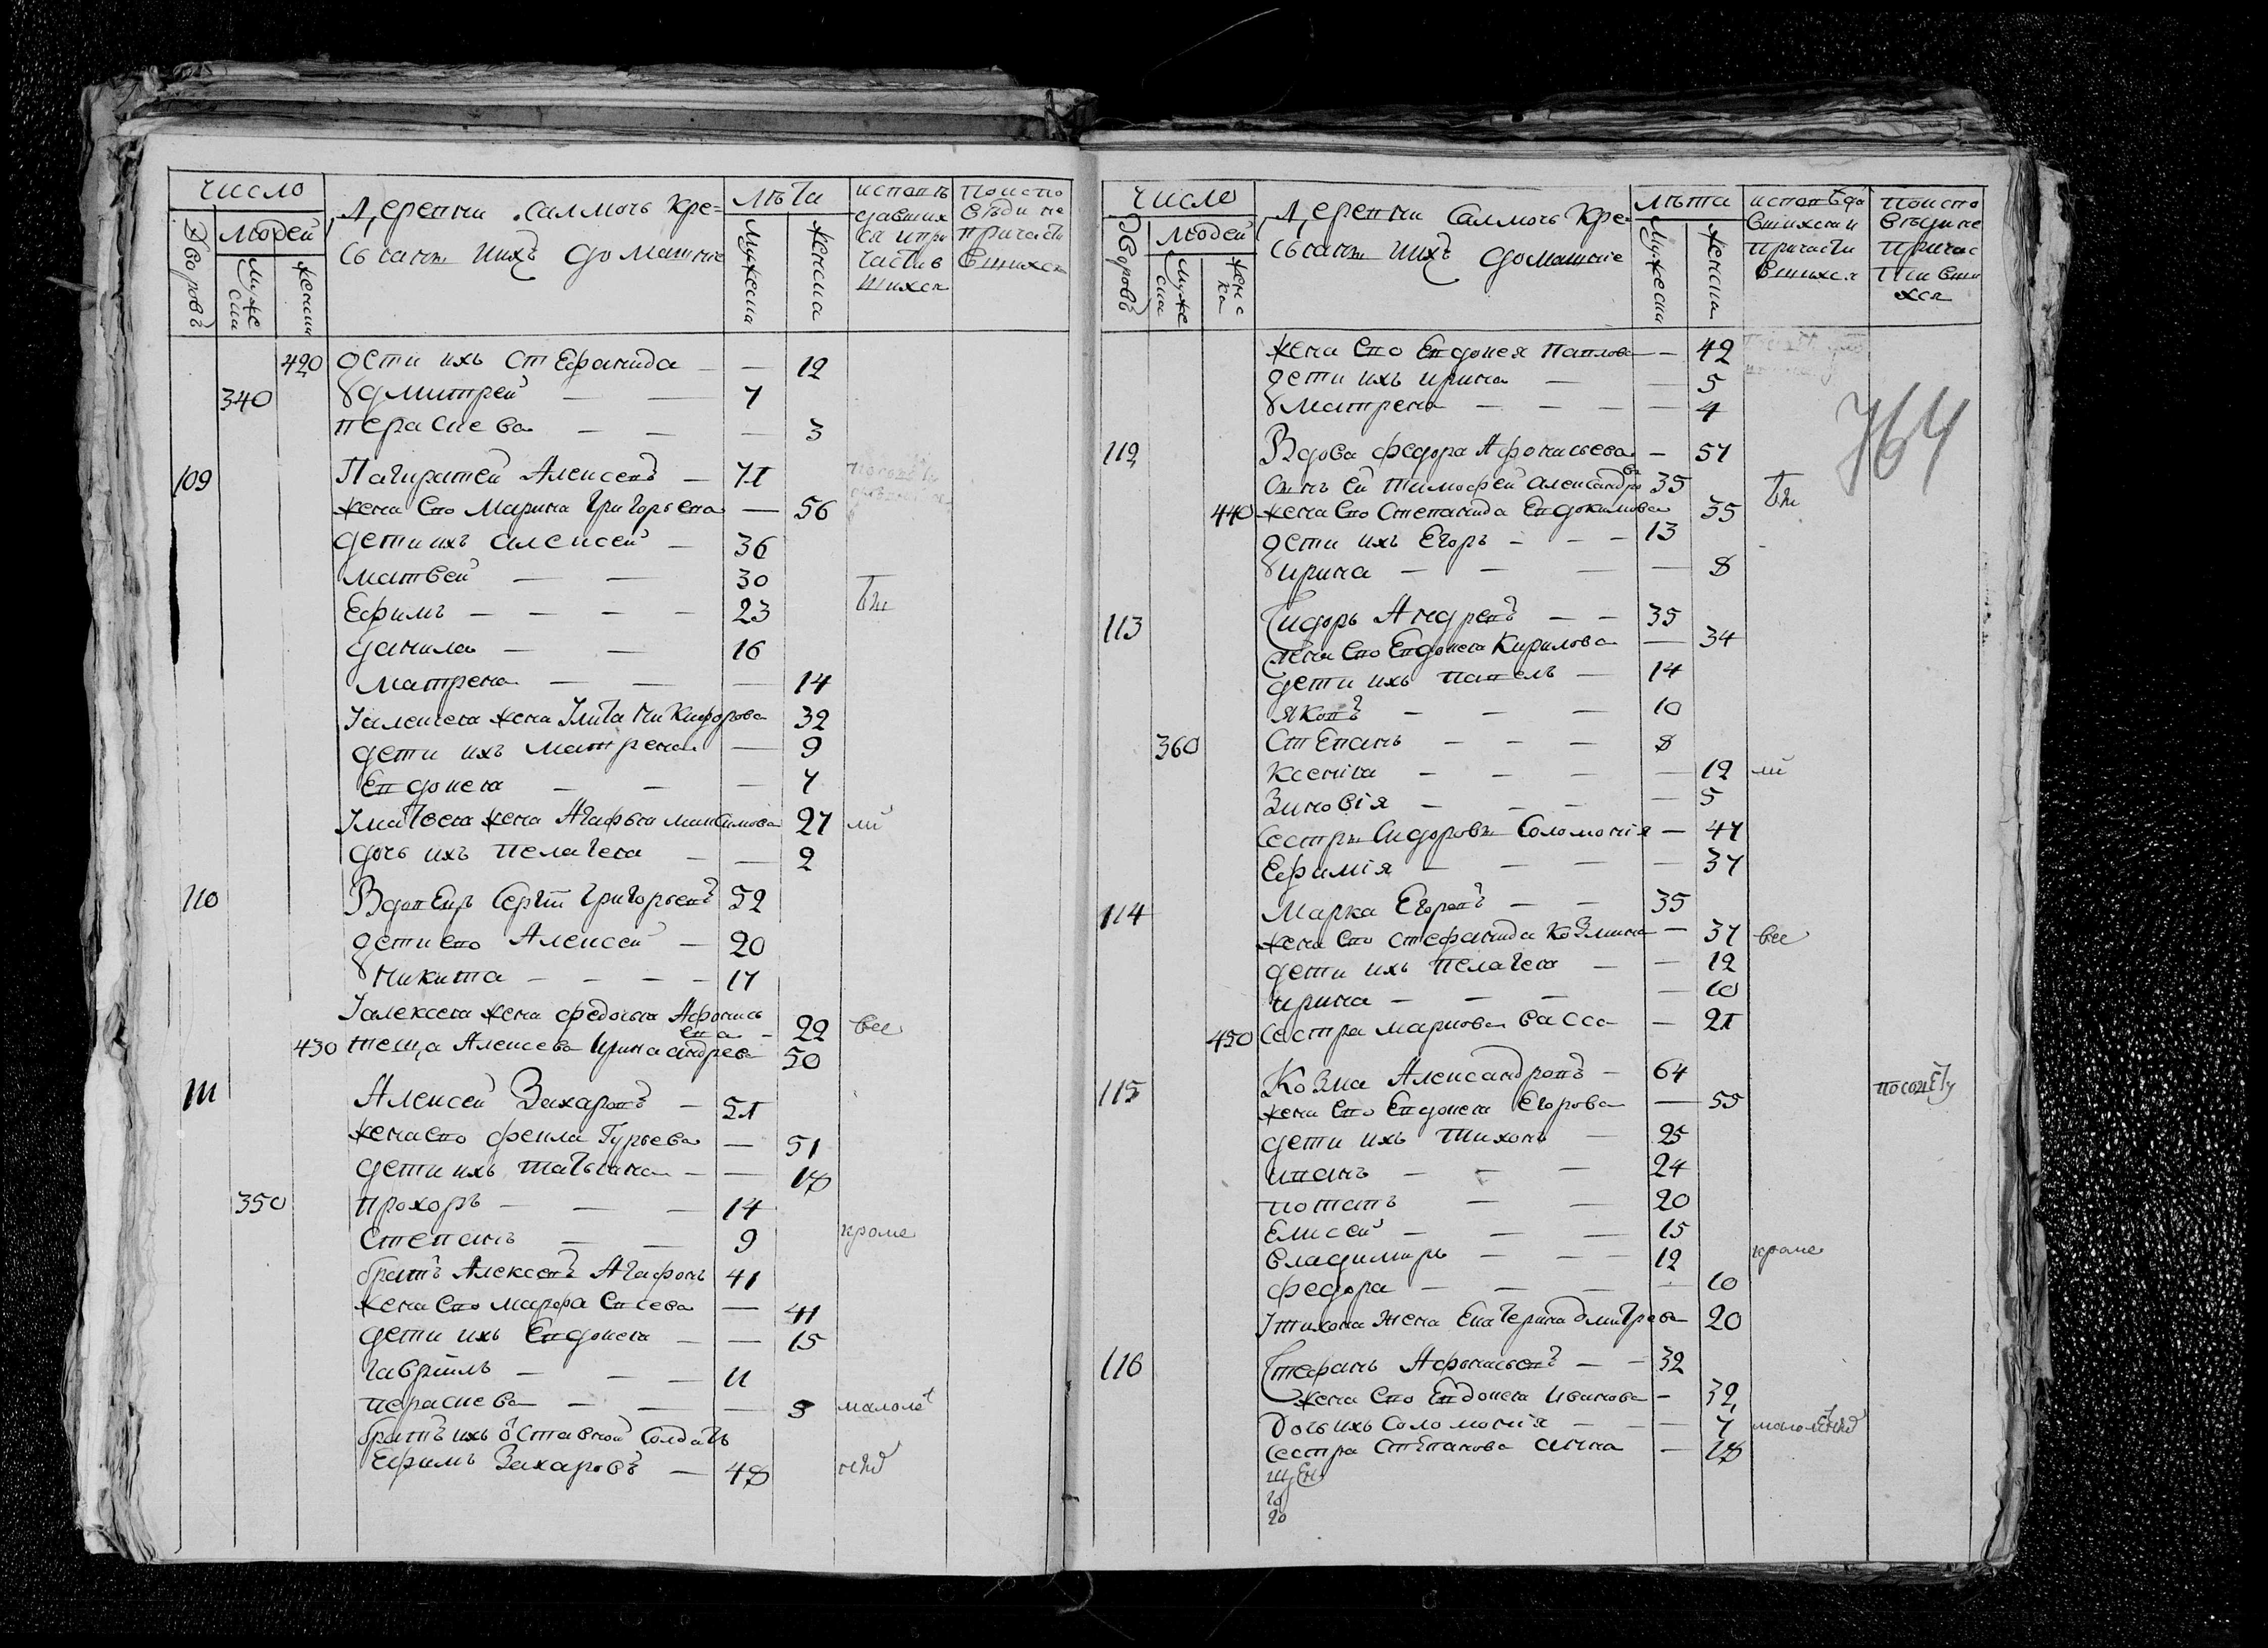 число
людей
Дворовъ
Муже
ска
женска
Деревни Салмочь Кре=
стьяны ихъ домашние
лѣта
Мужеска
женска
исповѣ
давших
ся и при
части в
шихся
По испо
вѣди не
причасти
вшихся
420 дети ихъ стефанида — — 12
340 дмитрей — — 7
пераскева — — — 3
109 Панкратей Алексеевъ — 71
жена ево Марина Григорьева — 56
дети ихъ алексей — 36
матвей — — 30
Ефимъ — — — — 23
данила — — 16
матрена — — — 14
алексея жена Улита Никифорова 32
дети ихъ матрена — 9
Евдокея — — — 7
матвея жена Агафья максимова 27
дочь ихъ пелагея — — 2
110 Вдовецъ Сергей Григорьевъ 52
дети ево Алексей — 20
никита — — — — 17
алексея жена федосья Афонась
ева — 22 все
430 теща Алексева Ирина андрева 50
111 Алексей Захаровъ — 51
жена ево фекла Гурьева — 51
дети ихъ татьяна — — 18
350 прохоръ — — — 14
Степанъ — — 9 кроме
братъ Алексевъ Агафонъ 41
жена ево марфа Евсева — 41
дети ихъ Евдокея — — 15
гаврiилъ — — — 11
пераскева — — — 5 малолет
братъ ихъ оставной солдатъ
Ефимъ Захаровъ — 48
число
людей
Дворовъ
Муже
ска
женс
ка
Деревни Салмочь Кре-
стьяны ихъ домашние
лѣта
Мужеска
женска
исповѣда
вшихся и
причасти
вшихся
По испо
вѣди не
причас
тивши
хся
764
жена ево Евдокея Павлова — 42
дети ихъ ирина — — 5
матрена — — — — 4
112 Вдова федора Афонасьева — 57
сынъ ей тимофей александро
въ 35
440 жена ево Степанида Евдокимова 35
дети ихъ Егоръ — — — 13
ирина — — — — 8
113 Сидоръ Андревъ — — 35
жена ево Евдокея Кирилова — 34
дети ихъ павелъ — 14
яковъ — — — 10
360 стЕпанъ — — — 8
ксенiя — — — — 12
Зиновiя — — — — 5
сестры Сидоровы Соломонiя — 47
Ефимiя — — — — 37
114 Марка Егоровъ — — 35
жена ево стефанида Козмина — 37 все
дети ихъ пелагея — — 12
ирина — — — — 10
450 сестра маркова васса — 21
115 Козма Александровъ — 64
жена ево Евдокея Егорова — 55
дети ихъ тихонъ — 25
иванъ — — — 24
потапъ — — 20
Елисей — — — 15
владимиръ — — — 12 кроме
федора — — — — 10
тихона жена Екатерина дмитрева 20
116 Стефанъ Афонасьевъ — — 32
жена ево Евдокея Иванова — 32
Дочь ихъ соломонiя — — — 7
сестра стЕпанова анна — 18
20